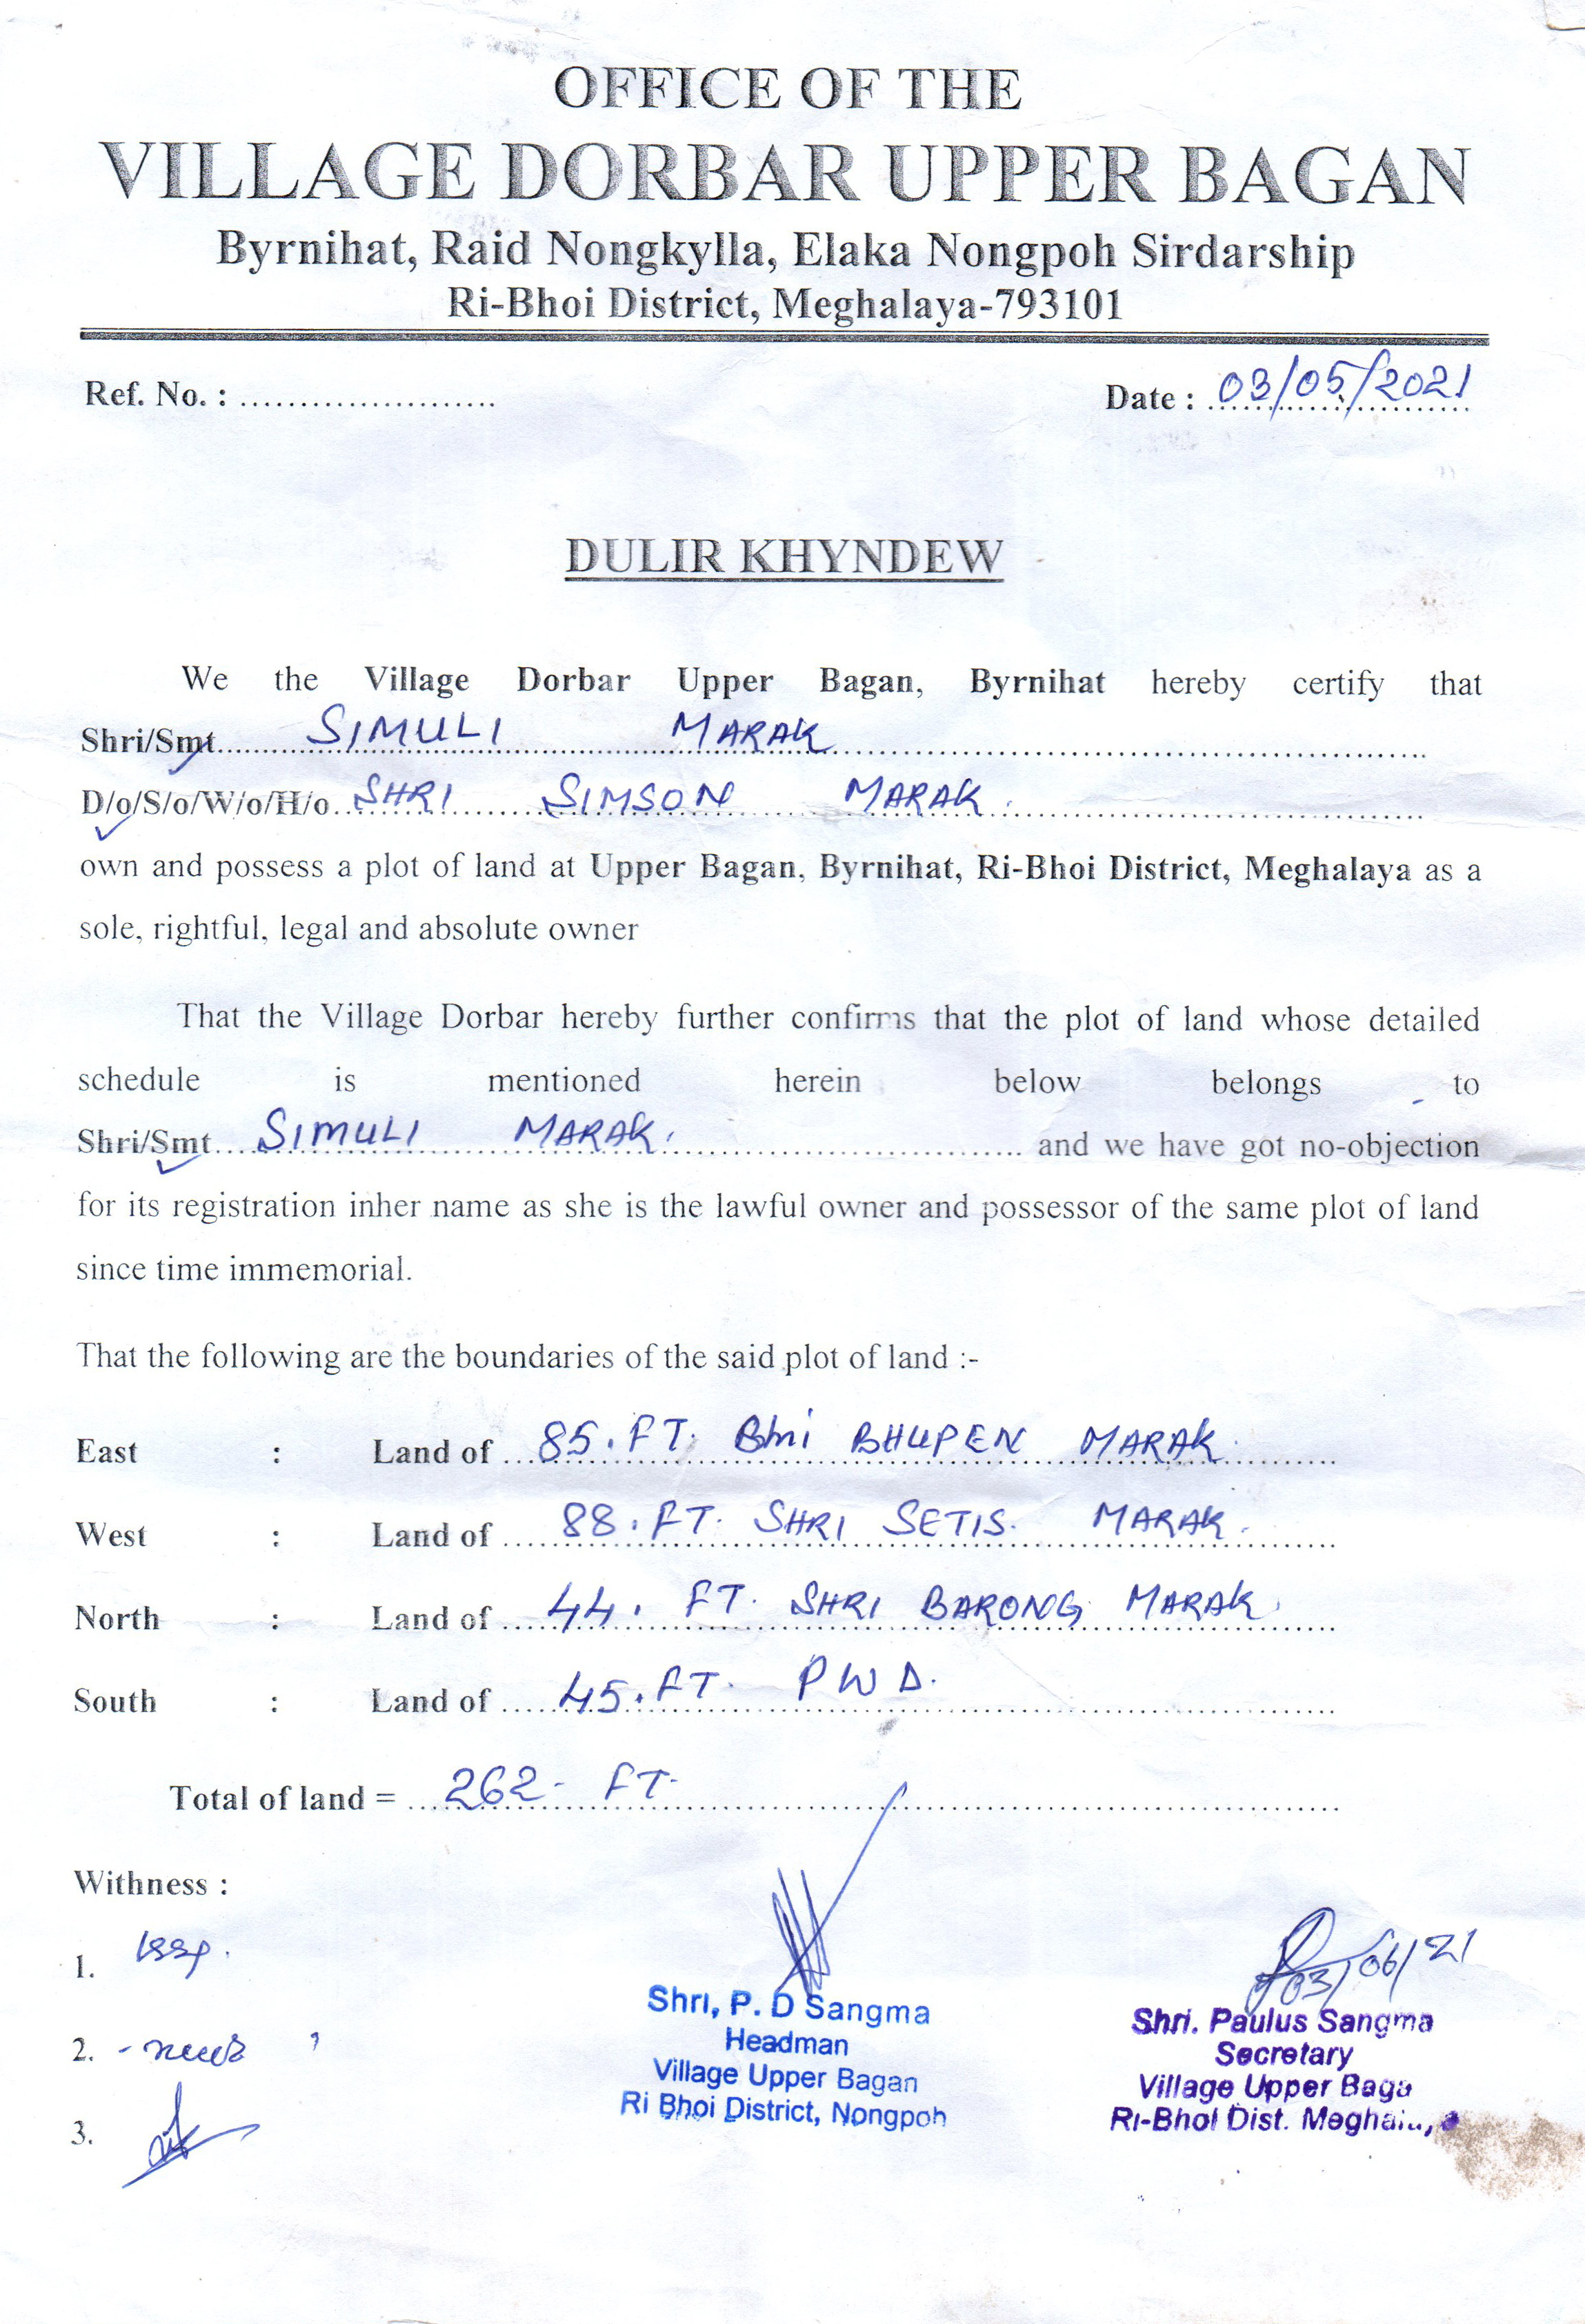 OFFICE OF THE
VILLAGE DORBAR UPPER BAGAN
Byrnihat, Raid Nongkylla, Elaka Nongpoh Sirdarship
Ri-Bhoi District, Meghalaya-793101
Ref. No. : ...................... Date : 03/05/2021
DULIR KHYNDEW
We the Village Dorbar Upper Bagan, Byrnihat hereby certify that
Shri/Smt SIMULI MARAK
D/o/S/o/W/o/H/o SHRI SIMSON MARAK.
own and possess a plot of land at Upper Bagan, Byrnihat, Ri-Bhoi District, Meghalaya as a
sole, rightful, legal and absolute owner
That the Village Dorbar hereby further confirms that the plot of land whose detailed
schedule is mentioned herein below belongs to
Shri/Smt SIMULI MARAK. and we have got no-objection
for its registration inher name as she is the lawful owner and possessor of the same plot of land
since time immemorial.
That the following are the boundaries of the said plot of land :-
East : Land of 85. FT. BHUPEN MARAK.
West : Land of 88. FT. SHRI SETIS. MARAK.
North : Land of 44. FT. SHRI BARONG MARAK.
South : Land of 45. FT. PWD.
Total of land = 262- FT.
Withness :
1.
2.
3.
Shri, P. D Sangma
Headman
Village Upper Bagan
Ri Bhoi District, Nongpoh
03/06/21
Shri. Paulus Sangma
Secretary
Village Upper Baga
Ri-Bhoi Dist.